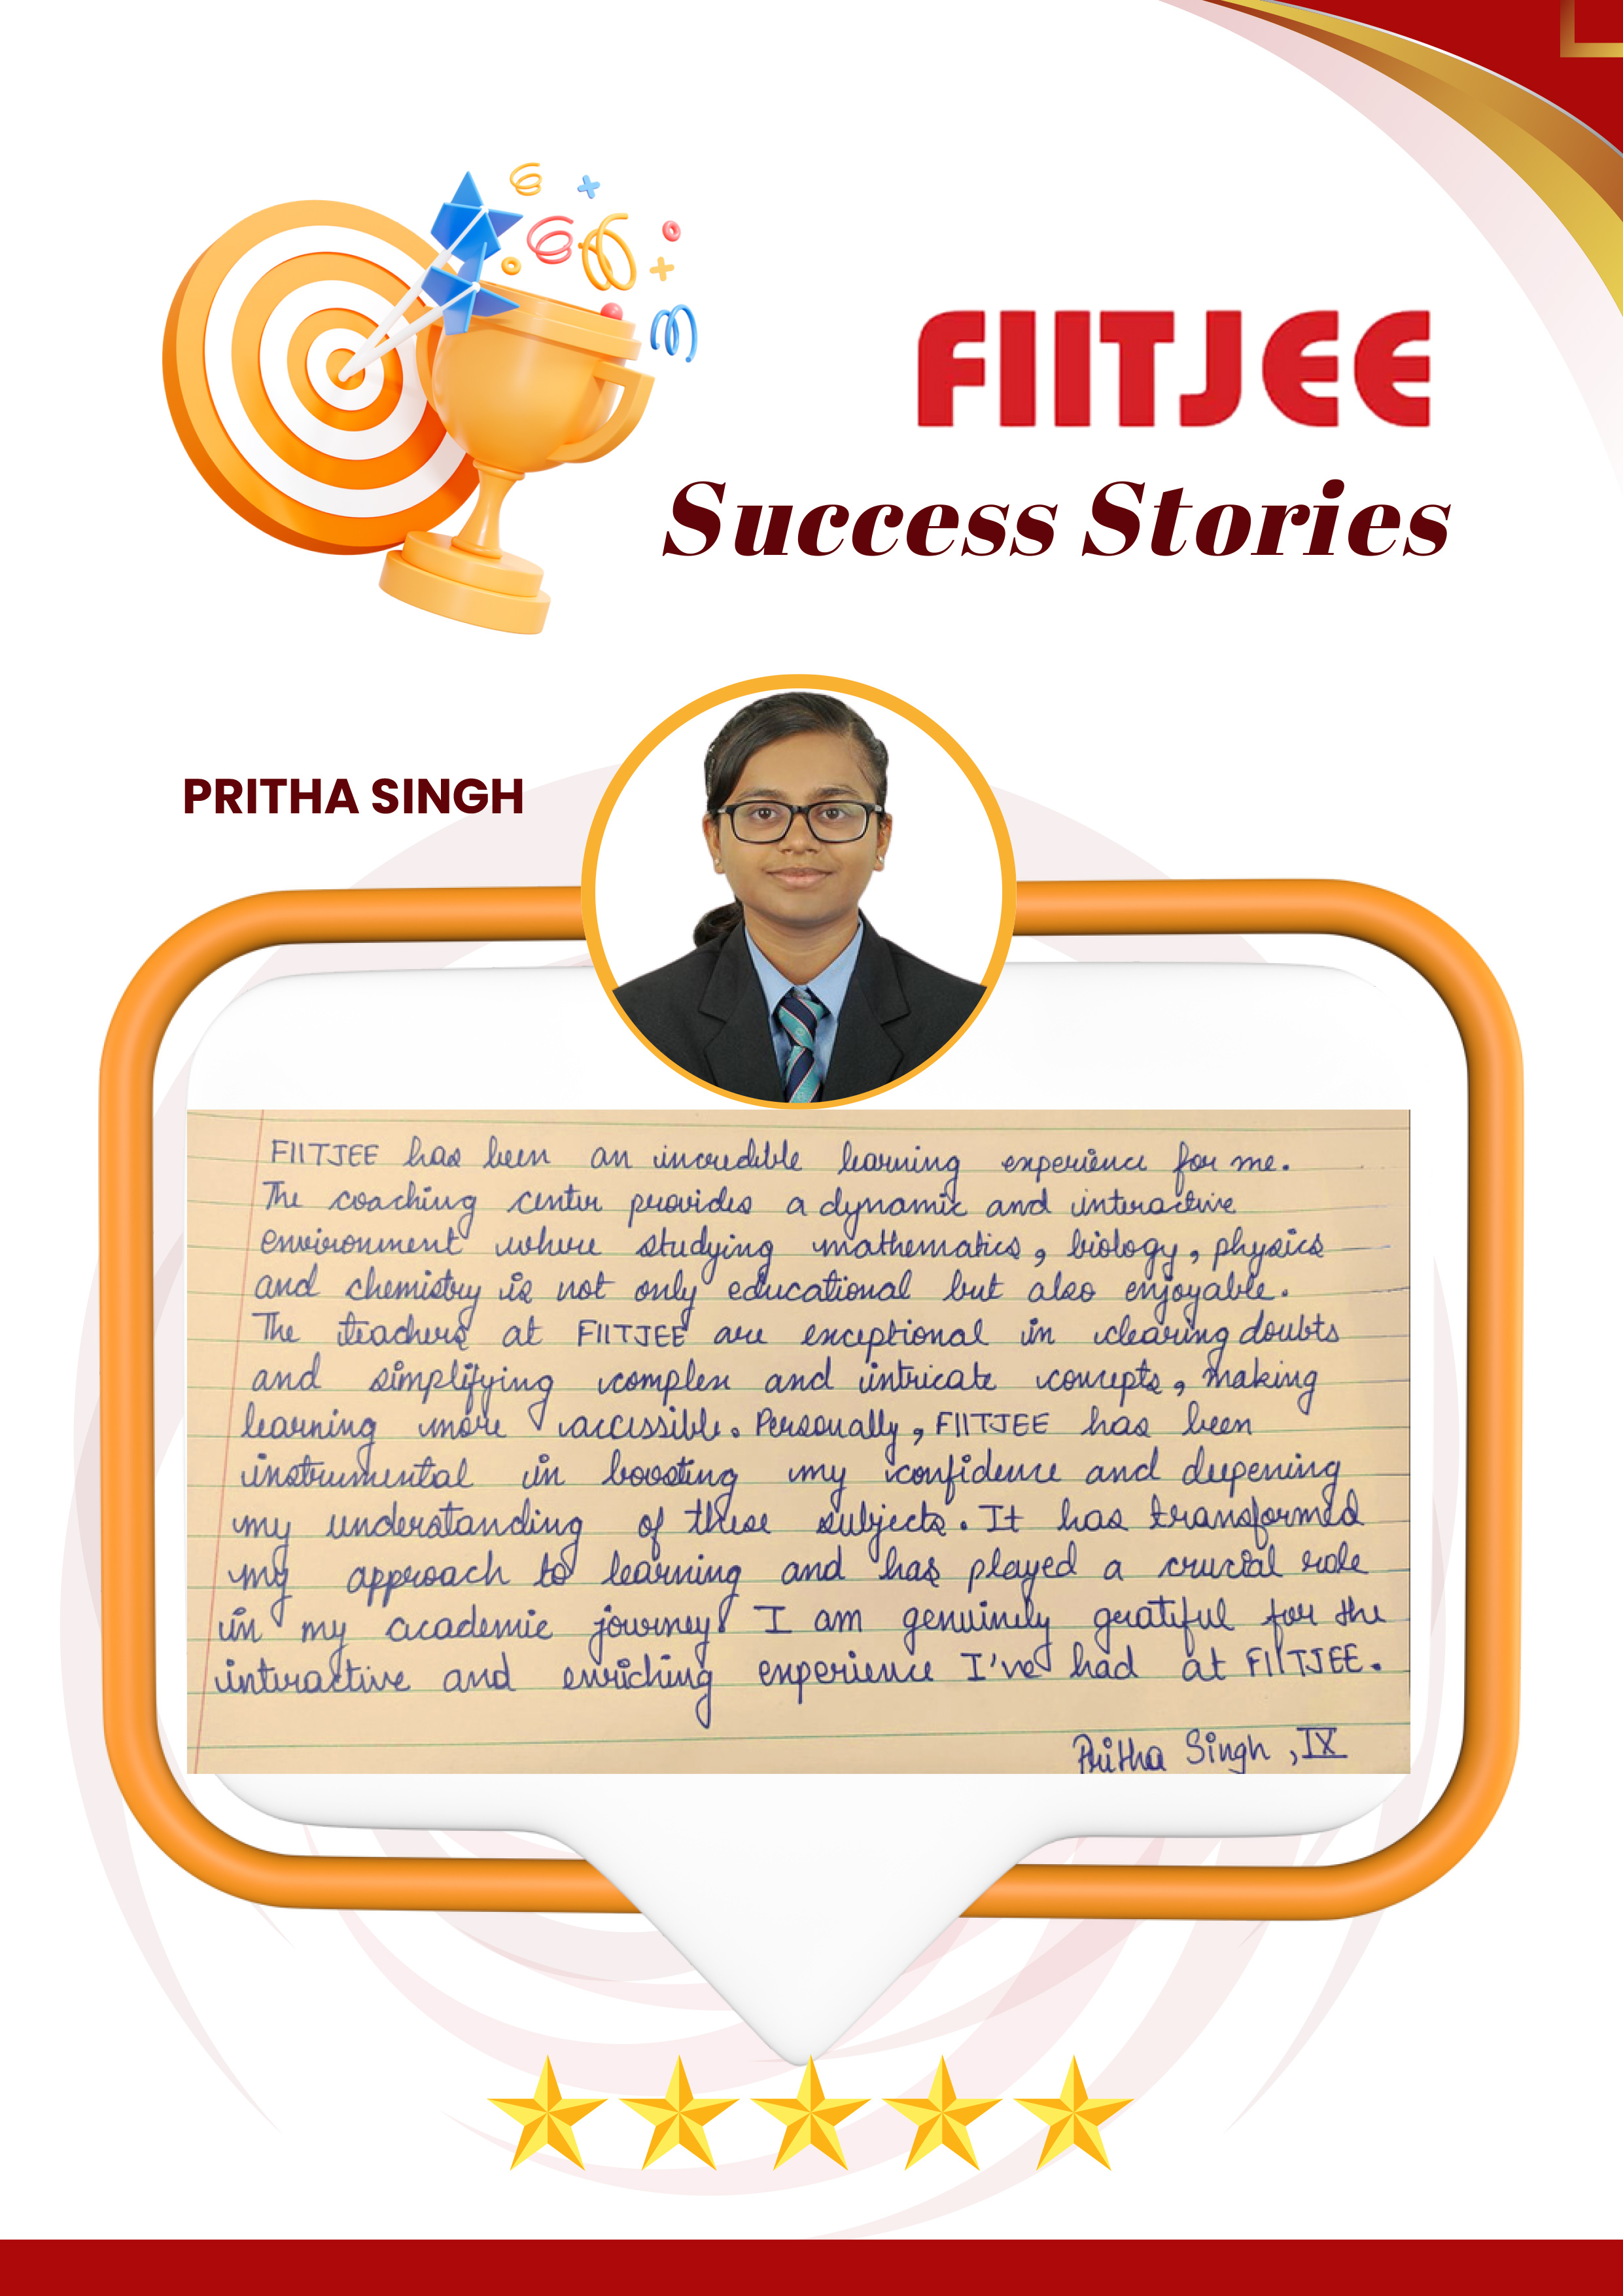 FIITJEE
Success Stories
PRITHA SINGH
FIITJEE has been an incredible learning experience for me.
The coaching center provides a dynamic and interactive
environment where studying mathematics, biology, physics
and chemistry is not only educational but also enjoyable.
The teachers at FIITJEE are exceptional in clearing doubts
and simplifying complex and intricate concepts, making
learning more accessible. Personally, FIITJEE has been
instrumental in boosting my confidence and deepening
my understanding of these subjects. It has transformed
my approach to learning and has played a crucial role
in my academic journey. I am genuinely gratiful for the
interactive and enriching experience I've had at FIITJEE.
Pritha Singh, IX